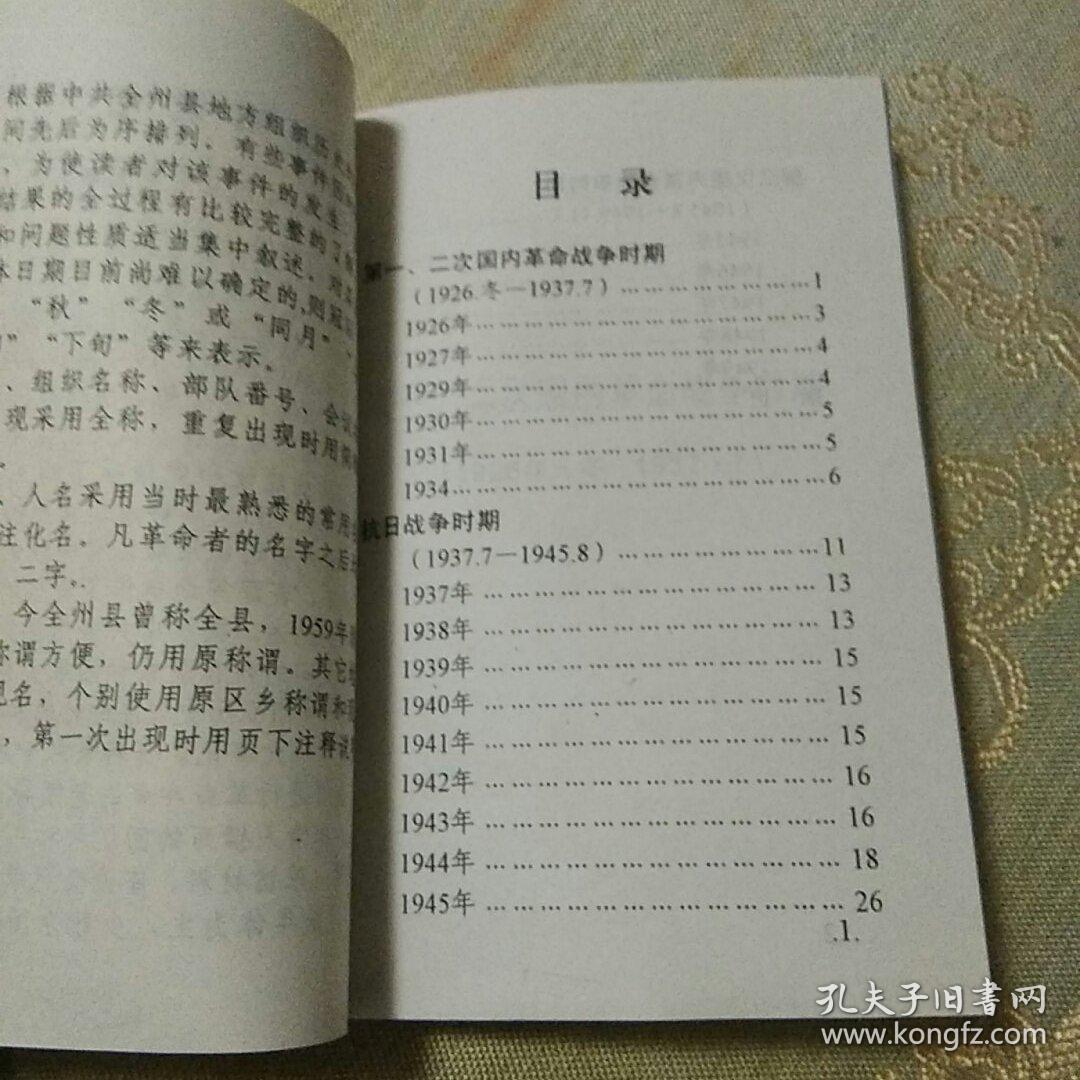 根据中共全州县地方组织
间先后为序排列。有些事件
，为使读者对该事件的发生
结果的全过程有比较完整的了
和问题性质适当集中叙述。对
体日期目前尚难以确定的，则
“秋”“冬”或“同月”
”“下旬”等来表示。
、组织名称、部队番号、会
现采用全称，重复出现时用
。
、人名采用当时最熟悉的常用
注化名。凡革命者的名字之后
二字。
今全州县曾称全县，1959年
称谓方便，仍用原称谓。其它
现名，个别使用原区乡称谓和
，第一次出现时用页下注释说
目 录
第一、二次国内革命战争时期
（1926.冬—1937.7）…………………1
1926年……………………………………3
1927年……………………………………4
1929年……………………………………4
1930年……………………………………5
1931年……………………………………5
1934………………………………………6
抗日战争时期
（1937.7—1945.8）…………………11
1937年……………………………………13
1938年……………………………………13
1939年……………………………………15
1940年……………………………………15
1941年……………………………………15
1942年……………………………………16
1943年……………………………………16
1944年……………………………………18
1945年……………………………………26
.1.
孔夫子旧书网
www.kongfz.com